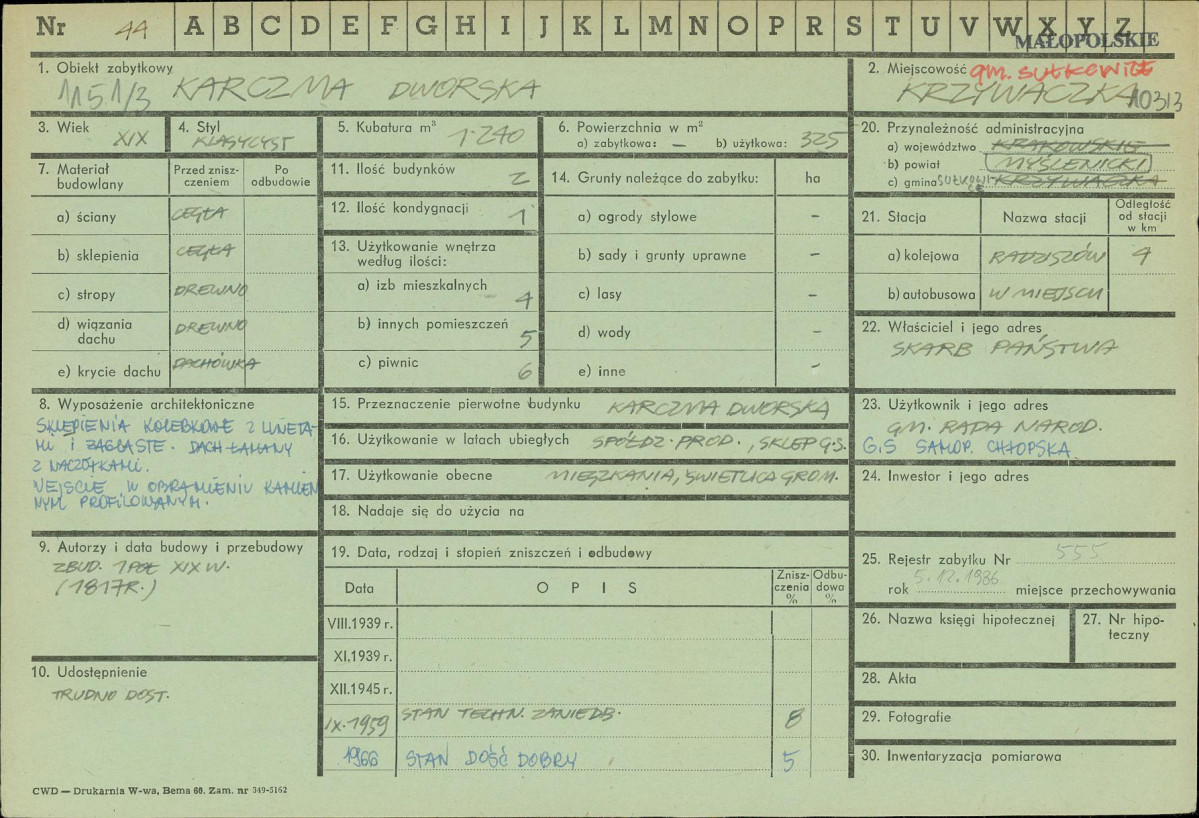 Nr 44 A B C D E F G H I J K L M N O P R S T U V W X Y Z
MAŁOPOLSKIE
1. Obiekt zabytkowy
1151/3 KARCZMA DWORSKA
2. Miejscowość gm. SUŁKOWICE
KRZYWACZKA 10313
3. Wiek
XIX
4. Styl
KLASYCYST
5. Kubatura m³
1·240
6. Powierzchnia w m²
a) zabytkowa: — b) użytkowa: 325
7. Materiał budowlany
Przed zniszczeniem
Po odbudowie
a) ściany CEGŁA
b) sklepienia CEGŁA
c) stropy DREWNO
d) wiązania dachu DREWNO
e) krycie dachu DACHÓWKA
8. Wyposażenie architektoniczne
SKLEPIENIA KOLEBKOWE Z LUNETA-
MI I ŻAGLASTE. DACH ŁAMANY
Z NACZÓŁKAMI.
WEJŚCIE W OBRAMIENIU KAMIEN
NYM PROFILOWANYM.
9. Autorzy i data budowy i przebudowy
ZBUD. 1 POŁ XIX W.
(1817R.)
10. Udostępnienie
TRUDNO DOST.
11. Ilość budynków 2
12. Ilość kondygnacji 1
13. Użytkowanie wnętrza
według ilości:
a) izb mieszkalnych 4
b) innych pomieszczeń 5
c) piwnic 6
14. Grunty należące do zabytku: ha
a) ogrody stylowe –
b) sady i grunty uprawne –
c) lasy –
d) wody –
e) inne –
15. Przeznaczenie pierwotne budynku KARCZMA DWORSKA
16. Użytkowanie w latach ubiegłych SPÓŁDZ. PROD., SKLEP G.S.
17. Użytkowanie obecne MIESZKANIA, ŚWIETLICA GROM.
18. Nadaje się do użycia na
19. Data, rodzaj i stopień zniszczeń i odbudowy
Data
O P I S
Zniszczenia %
Odbudowa %
VIII.1939 r.
XI.1939 r.
XII.1945 r.
IX.1959 STAN TECHN. ZANIEDB. 8
1966 STAN DOŚĆ DOBRY 5
20. Przynależność administracyjna
a) województwo KRAKOWSKIE
b) powiat MYŚLENICKI
c) gmina SUŁKOWICE KRZYWACZKA
21. Stacja
Nazwa stacji
Odległość od stacji w km
a) kolejowa RADZISZÓW 4
b) autobusowa W MIEJSCU
22. Właściciel i jego adres
SKARB PAŃSTWA
23. Użytkownik i jego adres
GM. RADA NAROD.
G.S SAMOP. CHŁOPSKA
24. Inwestor i jego adres
25. Rejestr zabytku Nr 555
rok 5.12.1986 miejsce przechowywania
26. Nazwa księgi hipotecznej
27. Nr hipoteczny
28. Akta
29. Fotografie
30. Inwentaryzacja pomiarowa
CWD — Drukarnia W-wa, Bema 60. Zam. nr 349-5162